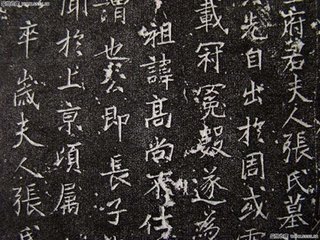 府君夫人張氏墓
先自出於周或
載冠冕遂為
祖諱高尚不仕
謂也公即長子
聞於上京項属
卒歲夫人張氏